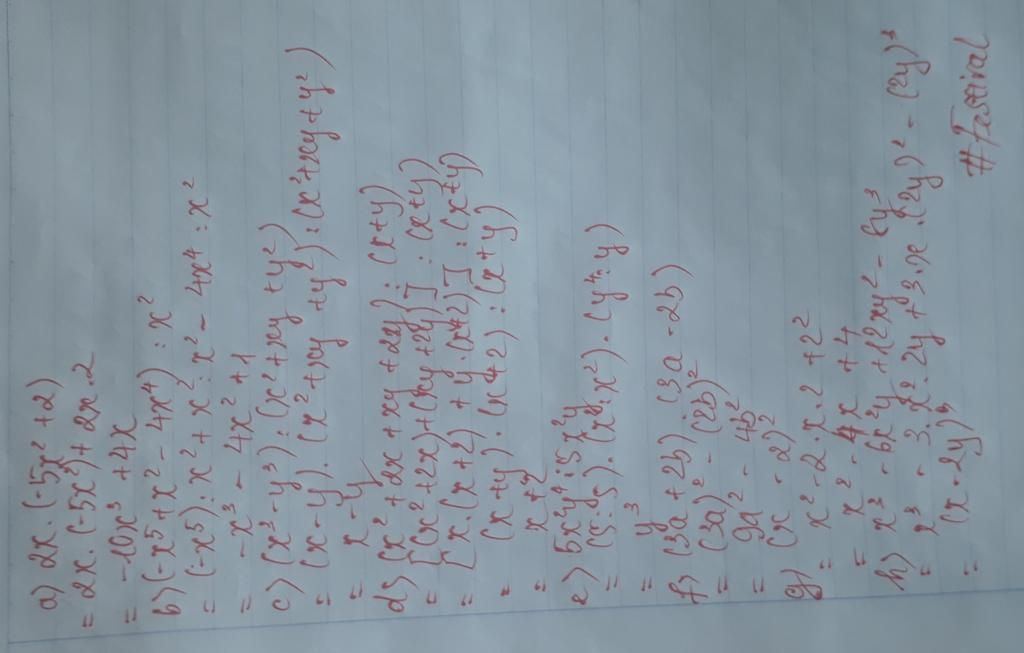 a) 2x.(-5x² + 2)
= 2x.(-5x²) + 2x.2
= -10x³ + 4x
b) (-x⁵ + x² - 4x⁴) : x²
= (-x⁵) : x² + x² : x² - 4x⁴ : x²
= -x³ - 4x² + 1
c) (x³ - y³) : (x² + xy + y²)
= (x - y).(x² + xy + y²) : (x² + xy + y²)
= x - y
d) (x² + 2x + xy + 2y) : (x + y)
= [(x² + 2x) + (xy + 2y)] : (x + y)
= [x.(x + 2) + y.(x + 2)] : (x + y)
= (x + y).(x + 2) : (x + y)
= x + 2
e) 5x²y⁴ : 5x²y
= (5 : 5).(x² : x²).(y⁴ : y)
= y³
f) (3a + 2b)(3a - 2b)
= (3a)² - (2b)²
= 9a² - 4b²
g) (x - 2)²
= x² - 2.x.2 + 2²
= x² - 4x + 4
h) x³ - 6x²y + 12xy² - 8y³
= x³ - 3.x².2y + 3.x.(2y)² - (2y)³
= (x - 2y)³
#Festival